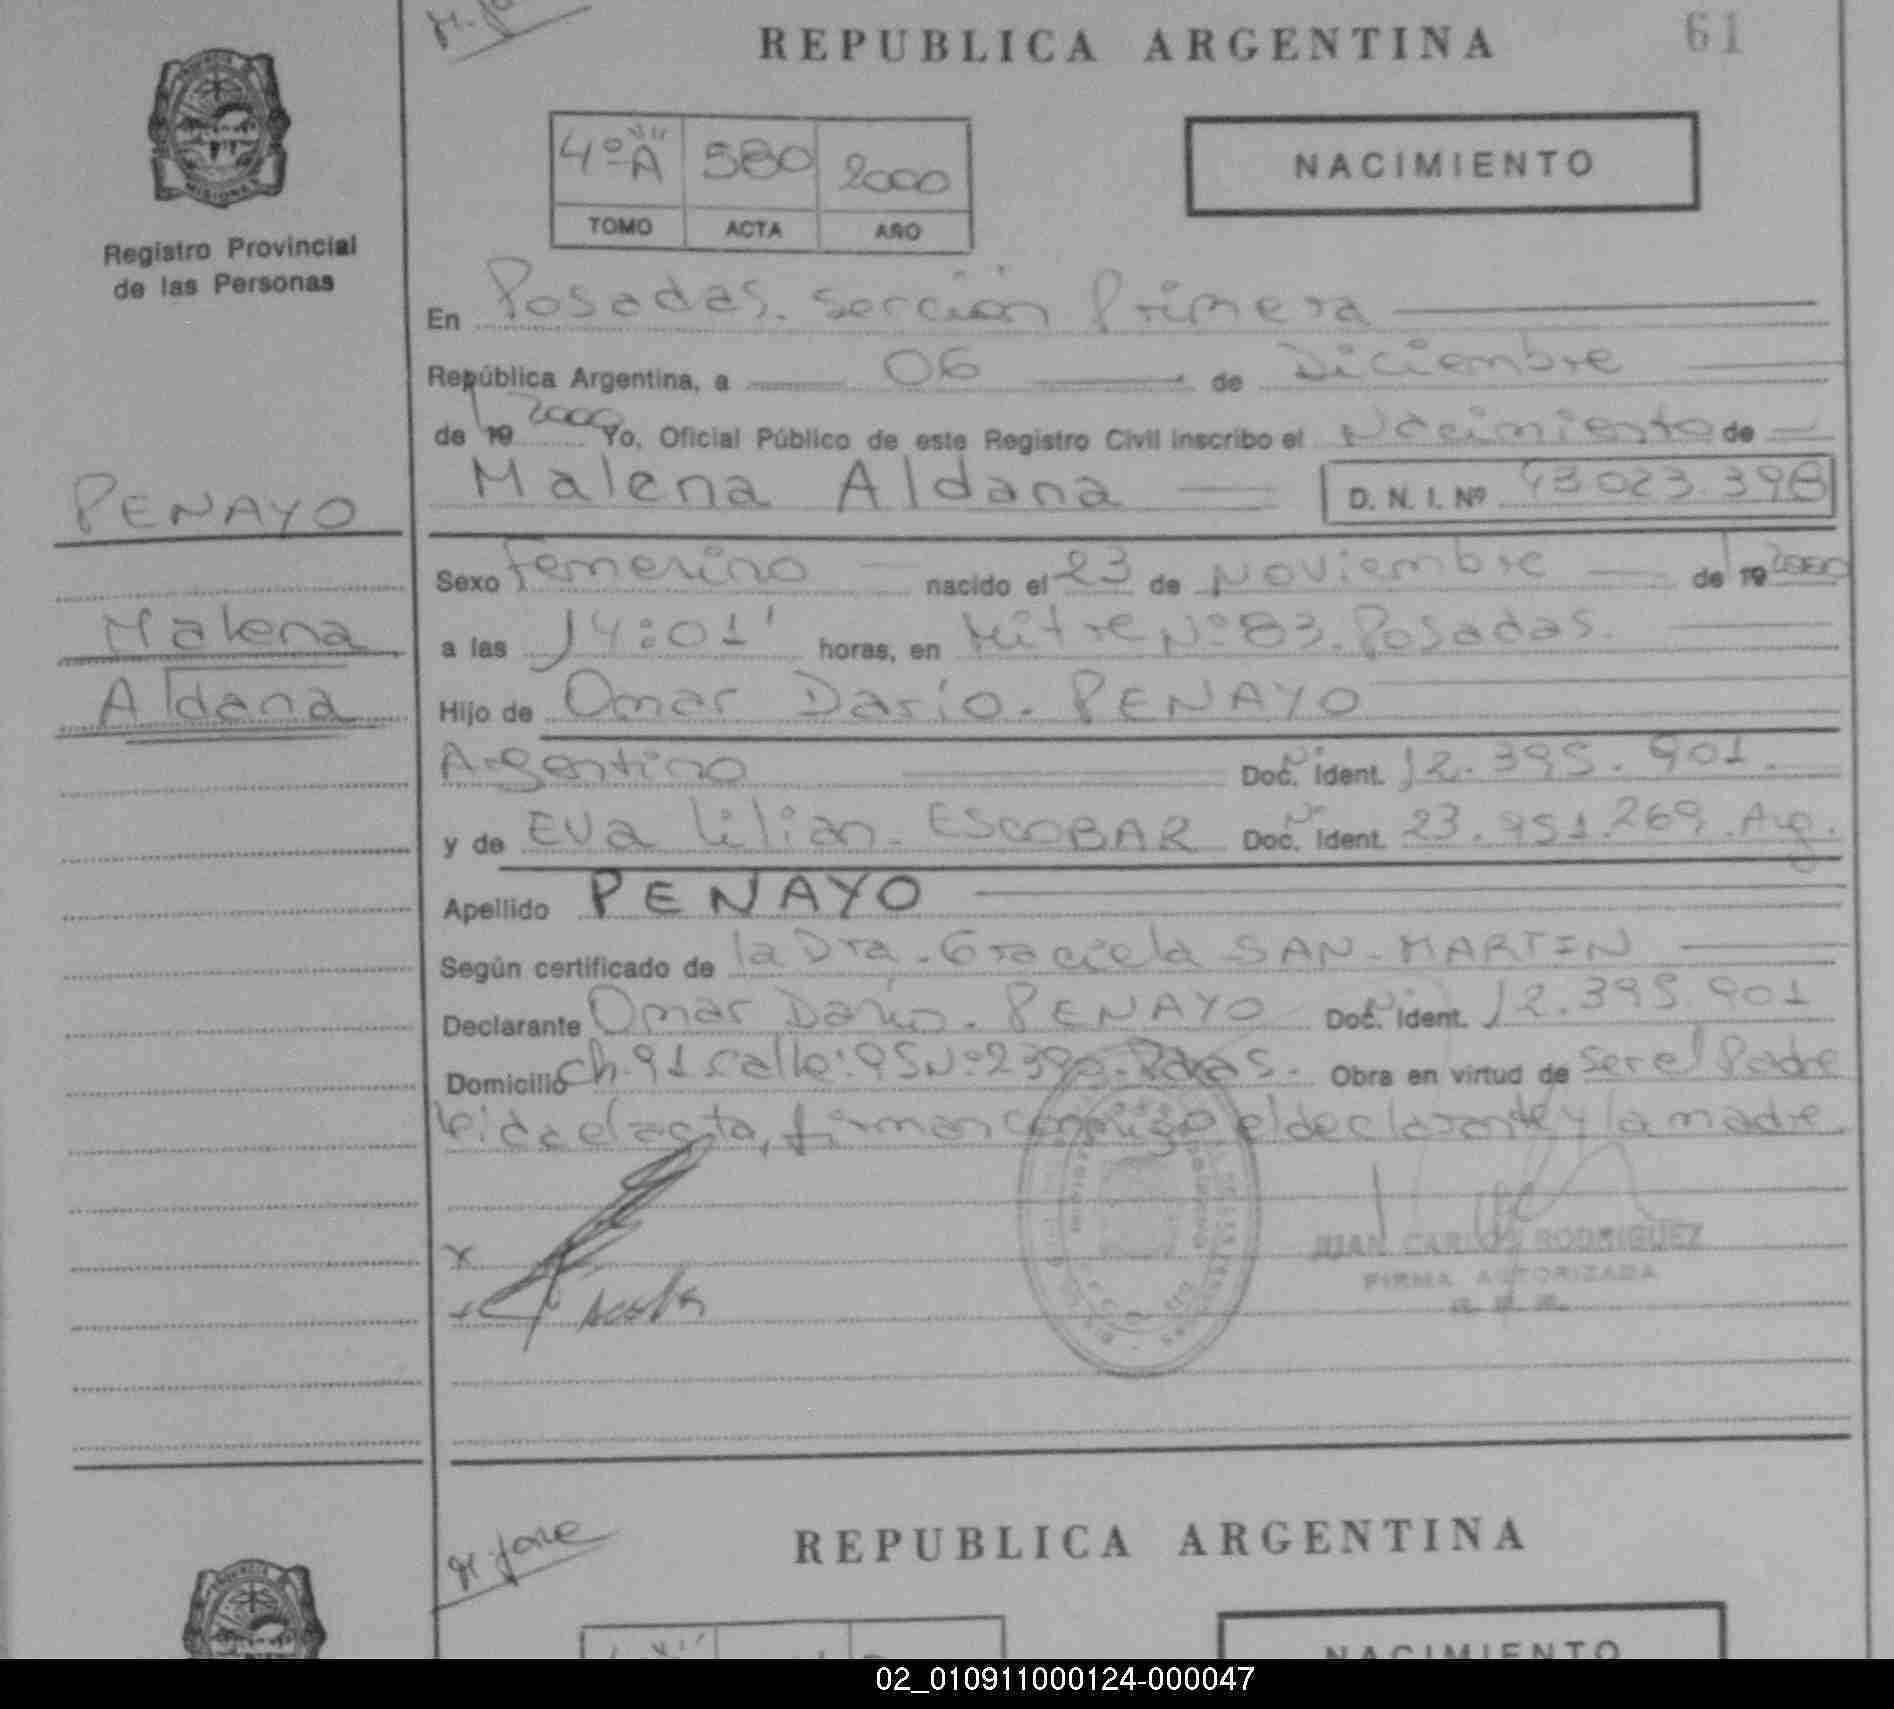 REPUBLICA ARGENTINA
61
Registro Provincial
de las Personas
4ºA 580 2000
TOMO ACTA AÑO
NACIMIENTO
En Posadas. Sección Primera
República Argentina, a 06 de Diciembre
de 19 2000 Yo, Oficial Público de este Registro Civil inscribo el Nacimiento de
Malena Aldana D. N. I. Nº 43.023.398
PENAYO
Malena
Aldana
Sexo Femenino nacido el 23 de Noviembre de 19 2000
a las 14:01' horas, en Mitre Nº 83. Posadas.
Hijo de Omar Darío. PENAYO
Argentino Doc. Ident. 12.395.901.
y de Eva Lilian. ESCOBAR Doc. Ident. 23.951.269. Arg.
Apellido PENAYO
Según certificado de la Dra. Graciela SAN-MARTIN
Declarante Omar Darío. PENAYO Doc. Ident. 12.395.901
Domicilio Ch. 91 calle: 95 Nº: Pdas. Obra en virtud de ser el Padre
leida el acta, firman conmigo el declarante y la madre.
JUAN CARLOS RODRIGUEZ
FIRMA AUTORIZADA
REPUBLICA ARGENTINA
NACIMIENTO
02_010911000124-000047